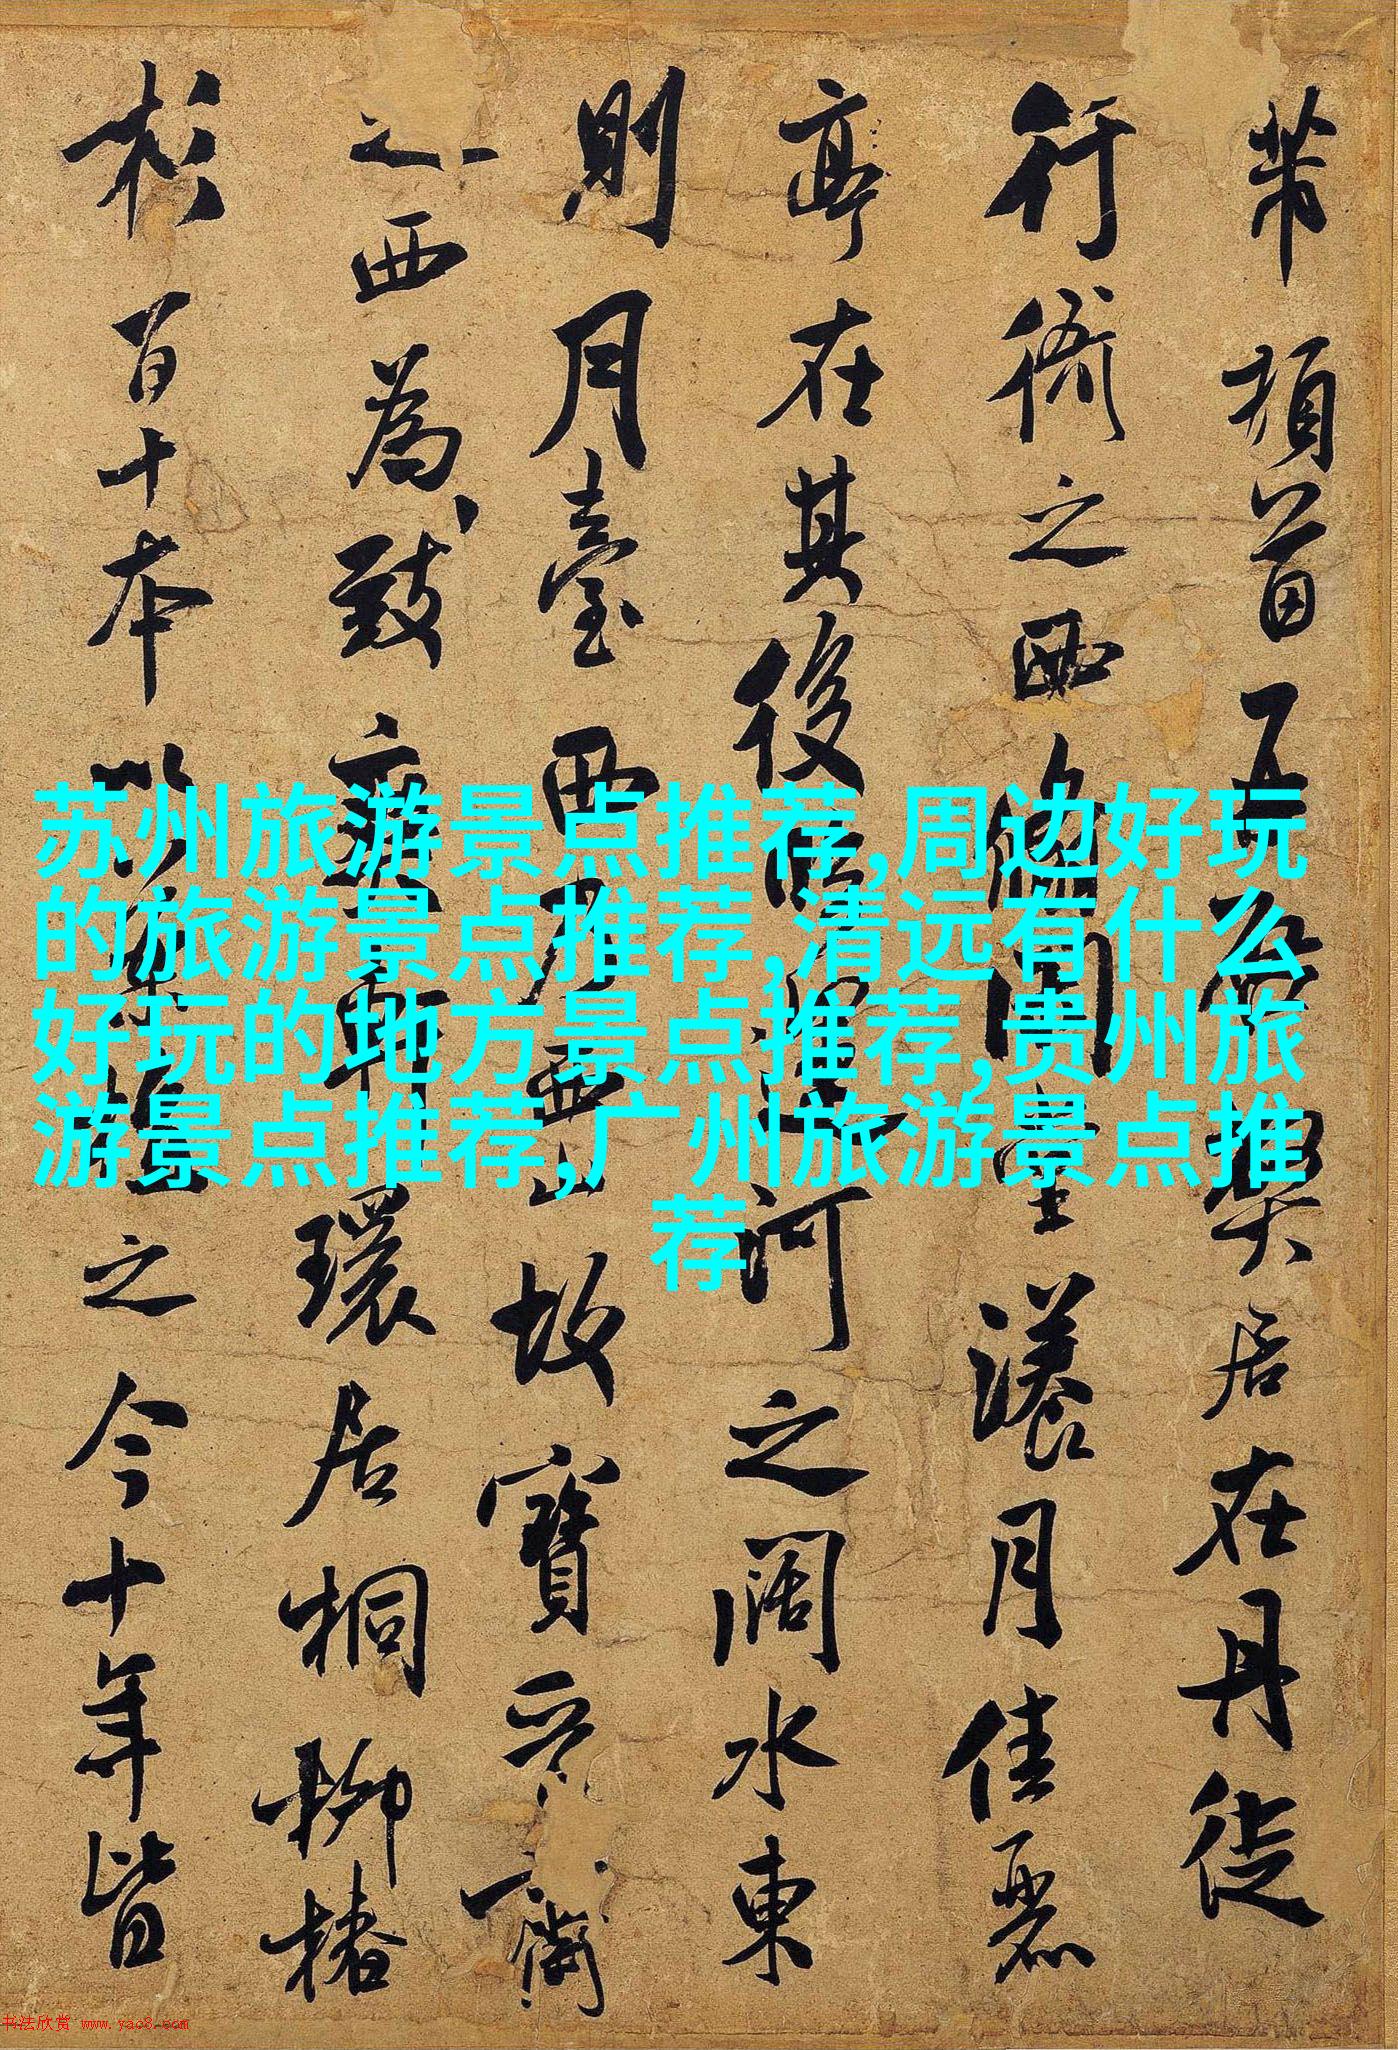 芾頓首再啓弊居在丹徒
行衙之西翛閒堂漾月佳麗
亭在其後臨運河之闊水東
則月臺西乃西山故寶晉齋
之西為致爽軒環居桐柳椿
杉百十本以藥植之今十年皆
苏州旅游景点推荐,周边好玩
的旅游景点推荐,清远有什么
好玩的地方景点推荐,贵州旅
游景点推荐,广州旅游景点推
荐
书法欣赏 www.yac8.com